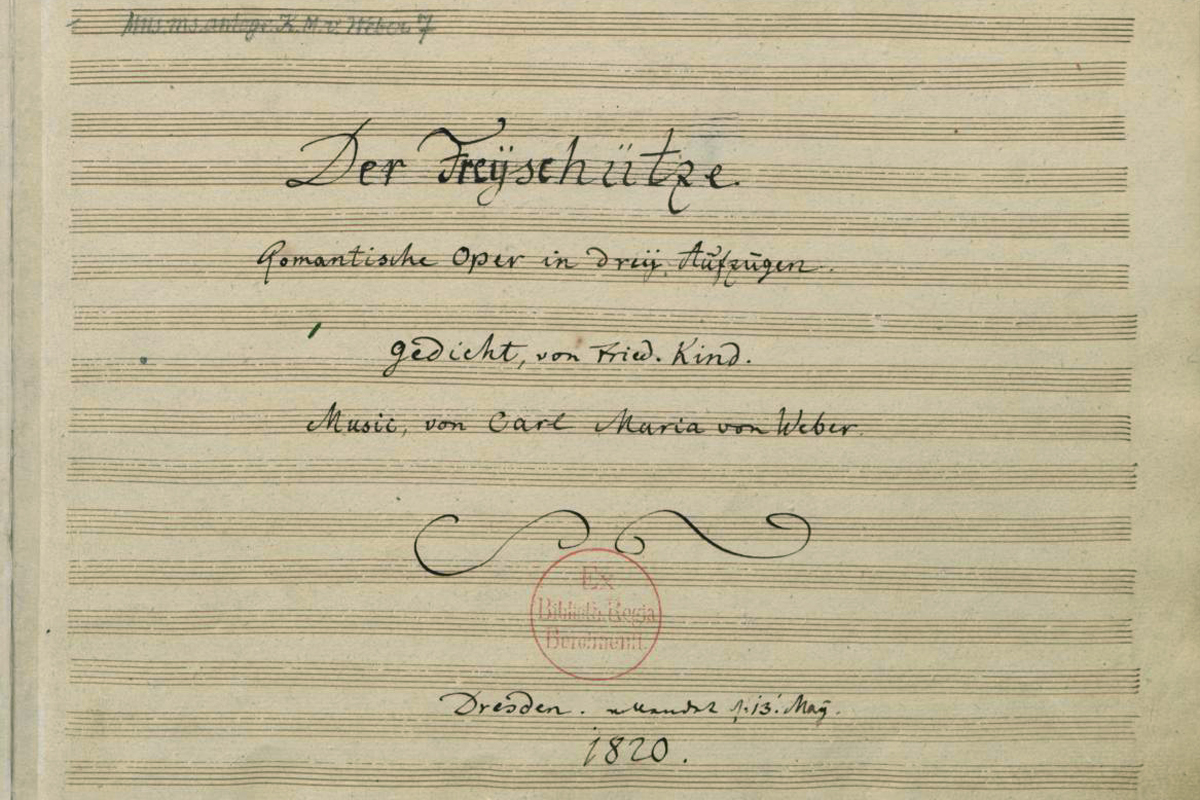 Mus. ms. autogr. K. M. v. Weber 7
Der Freÿschütze.
Romantische Oper in dreÿ Aufzügen.
Gedicht, von Fried. Kind.
Music, von Carl Maria von Weber.
Ex
Biblioth. Regia
Berolinenſi.
Dresden. vollendet d: 13: Maÿ.
1820.